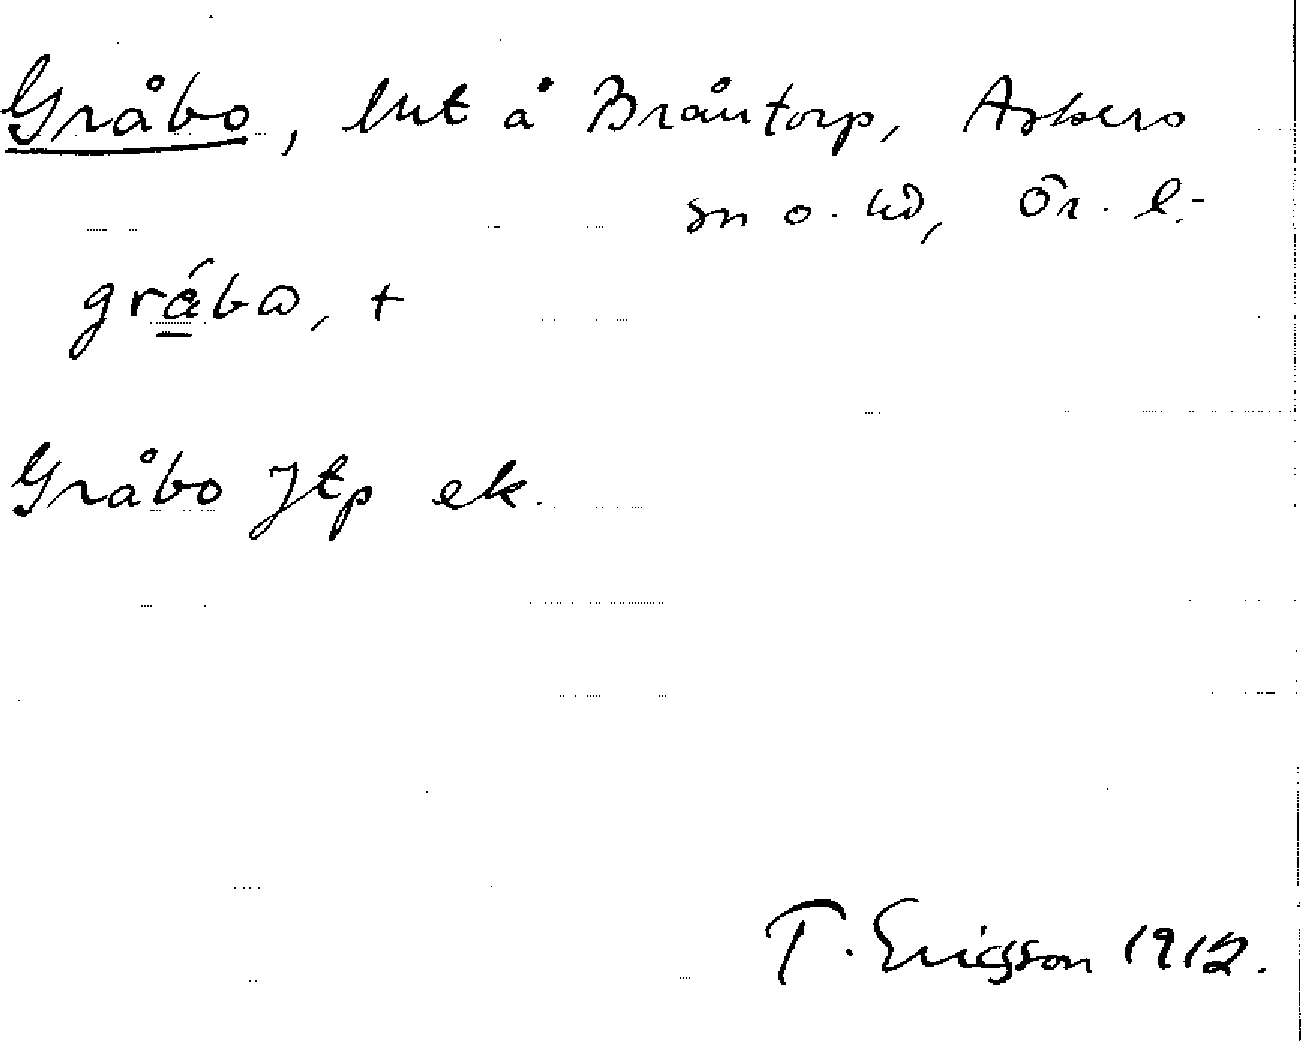 Gråbo, lht å Bråntorp, Askers
sn o. hd, Ör. l.
grába, +
Gråbo Jtp ek.
T. Ericsson 1912.